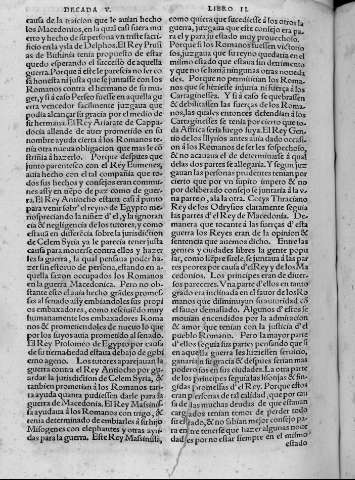 DECADA V.
LIBRO II.
causa de la traicion que le auian hecho
los Macedonios, en la qual casi fuera mu
erto y hecho de su persona vn triste sacri
ficio en la ysla de Delphos. El Rey Prusi
as de Bithinia tenia proposito de estar
quedo esperando el successo de aquella
guerra. Porque a este le parescia no ser co
sa honesta ni justa que se juntasse con los
Romanos contra el hermano de su mu
ger, y si a caso Perseo fuesse en aquella gu
erra vencedor facilmente juzgaua que
podia alcançar su gracia por el medio de
su hermana. El Rey Ariarate de Cappa-
docia allende de auer prometido en su
nombre ayuda cierta a los Romanos te-
nia otra nueua obligacion que mas le cõ
striñia a hazerlo. Porque despues que
junto parentesco con el Rey Eumenes,
auia hecho con el tal compañia que to-
dos sus hechos y consejos eran commu-
nes assi en tiẽpo de paz como de guer-
ra. El Rey Antiocho estaua casi a punto
para venir sobre el reyno de Egypto me
nospreciando la niñez d'el, y la ignoran
cia & negligencia de los tutores, y como
estaua en differencia sobre la jurisdicion
de Celem Syria ya le parecia tener justa
causa para mouerse contra ellos y hazer
les la guerra, la qual pensaua poder ha-
zer sin estoruo de persona, estando en a-
quella sazon occupados los Romanos
en la guerra Macedonica. Pero no ob-
stante esto el auia hecho grãdes promes
ses al senado assi y embiandoles sus propi
os embaxadores, como rescibiendo muy
humanamente los embaxadores Roma
nos & prometiendoles de nueuo lo que
por los suyos auia prometido al senado.
El Rey Ptolomeo de Egypto por causa
de su tierna edad estaua debajo de gobi
erno ageno. Los tutores aparejauan la
guerra contra el Rey Antiocho por gu-
ardar la jurisdicion de Celem Syria, &
tambien prometian a los Romanos tu-
ra ayuda quanta pudiessen darle para la
guerra de Macedonia. El Rey Massinis-
sa ayudaua a los Romanos con trigo, &
tenia determinado de embiarles a su hijo
Misogenes con elephantes y otras ayu-
das para la guerra. Este Rey Massinissa,
como quiera que succediesse a los otros la
guerra, juzgaua que este consejo era pa-
ra el y para su estado muy prouechoso.
Porque si los Romanos fuessen victorio
sos, juzgaua que su reyno quedaria en el
mismo estado que estaua sin detrimento
y que no le haria ningunas otras noueda
des. Porque no permitirian los Roma-
nos que se hiziesse injuria ni fuerza a los
Cartagineses. Y si a caso se quebrassen
& debilitassen las fuerças de los Roma-
nos, las quales entonces defendian a los
Cartagineses se tenia por cierto que to-
da Africa seria luego suya. El Rey Gen-
cio de los Illyrios antes auia dado occasi-
on a los Romanos de serles sospechoso,
& no acauaua el de determinarse a qual
delas dos partes se allegaria. Y segun juz
gauan las personas prudentes tenian por
cierto que por vn supito impero & no
por deliberado consejo se juntaria a la v-
na parte o, a la otra. Cotys Thraciano
Rey de los Odrysios claramente seguia
las partes d'el Rey de Macedonia. De-
manera que tocante a las fuerças d'esta
guerra los Reyes eran de la opinion &
sentencia que auemos dicho. Entre las
gentes y ciudades libres la gente popu
lar, como siẽpre suele, se juntaua a las par
tes peores por causa d'el Rey y de los Ma
cedonios. Los principes eran de diuer-
sos pareceres. Vna parte d'ellos en tanto
grado era inclinada en el fauor de los Ro
manos que disminuyan su autoridad cõ
el fauor demasiado. Algunos d'ellos se
mouian encendidos por la admiracion
& amor que tenian con la justicia d'el
pueblo Romano. Pero la mayor parte
d'ellos seguia sus partes pensando que si
en aquella guerra les hiziessen seruicio,
ganarian su gracia & despues serian mas
poderosos en sus ciudades. La otra parte
de los principes seguia las lisonjas & fin-
gidas promessas d'el Rey. Porque estos
eran personas de tal calidad, que por cau
sa de las muchas deudas de que estauan
cargados tenian temor de perder todo
su estado, & no sabian mejor consejo pa
ra entretenerse que hazer algunas noue
dades por no estar siempre en el mismo
estado